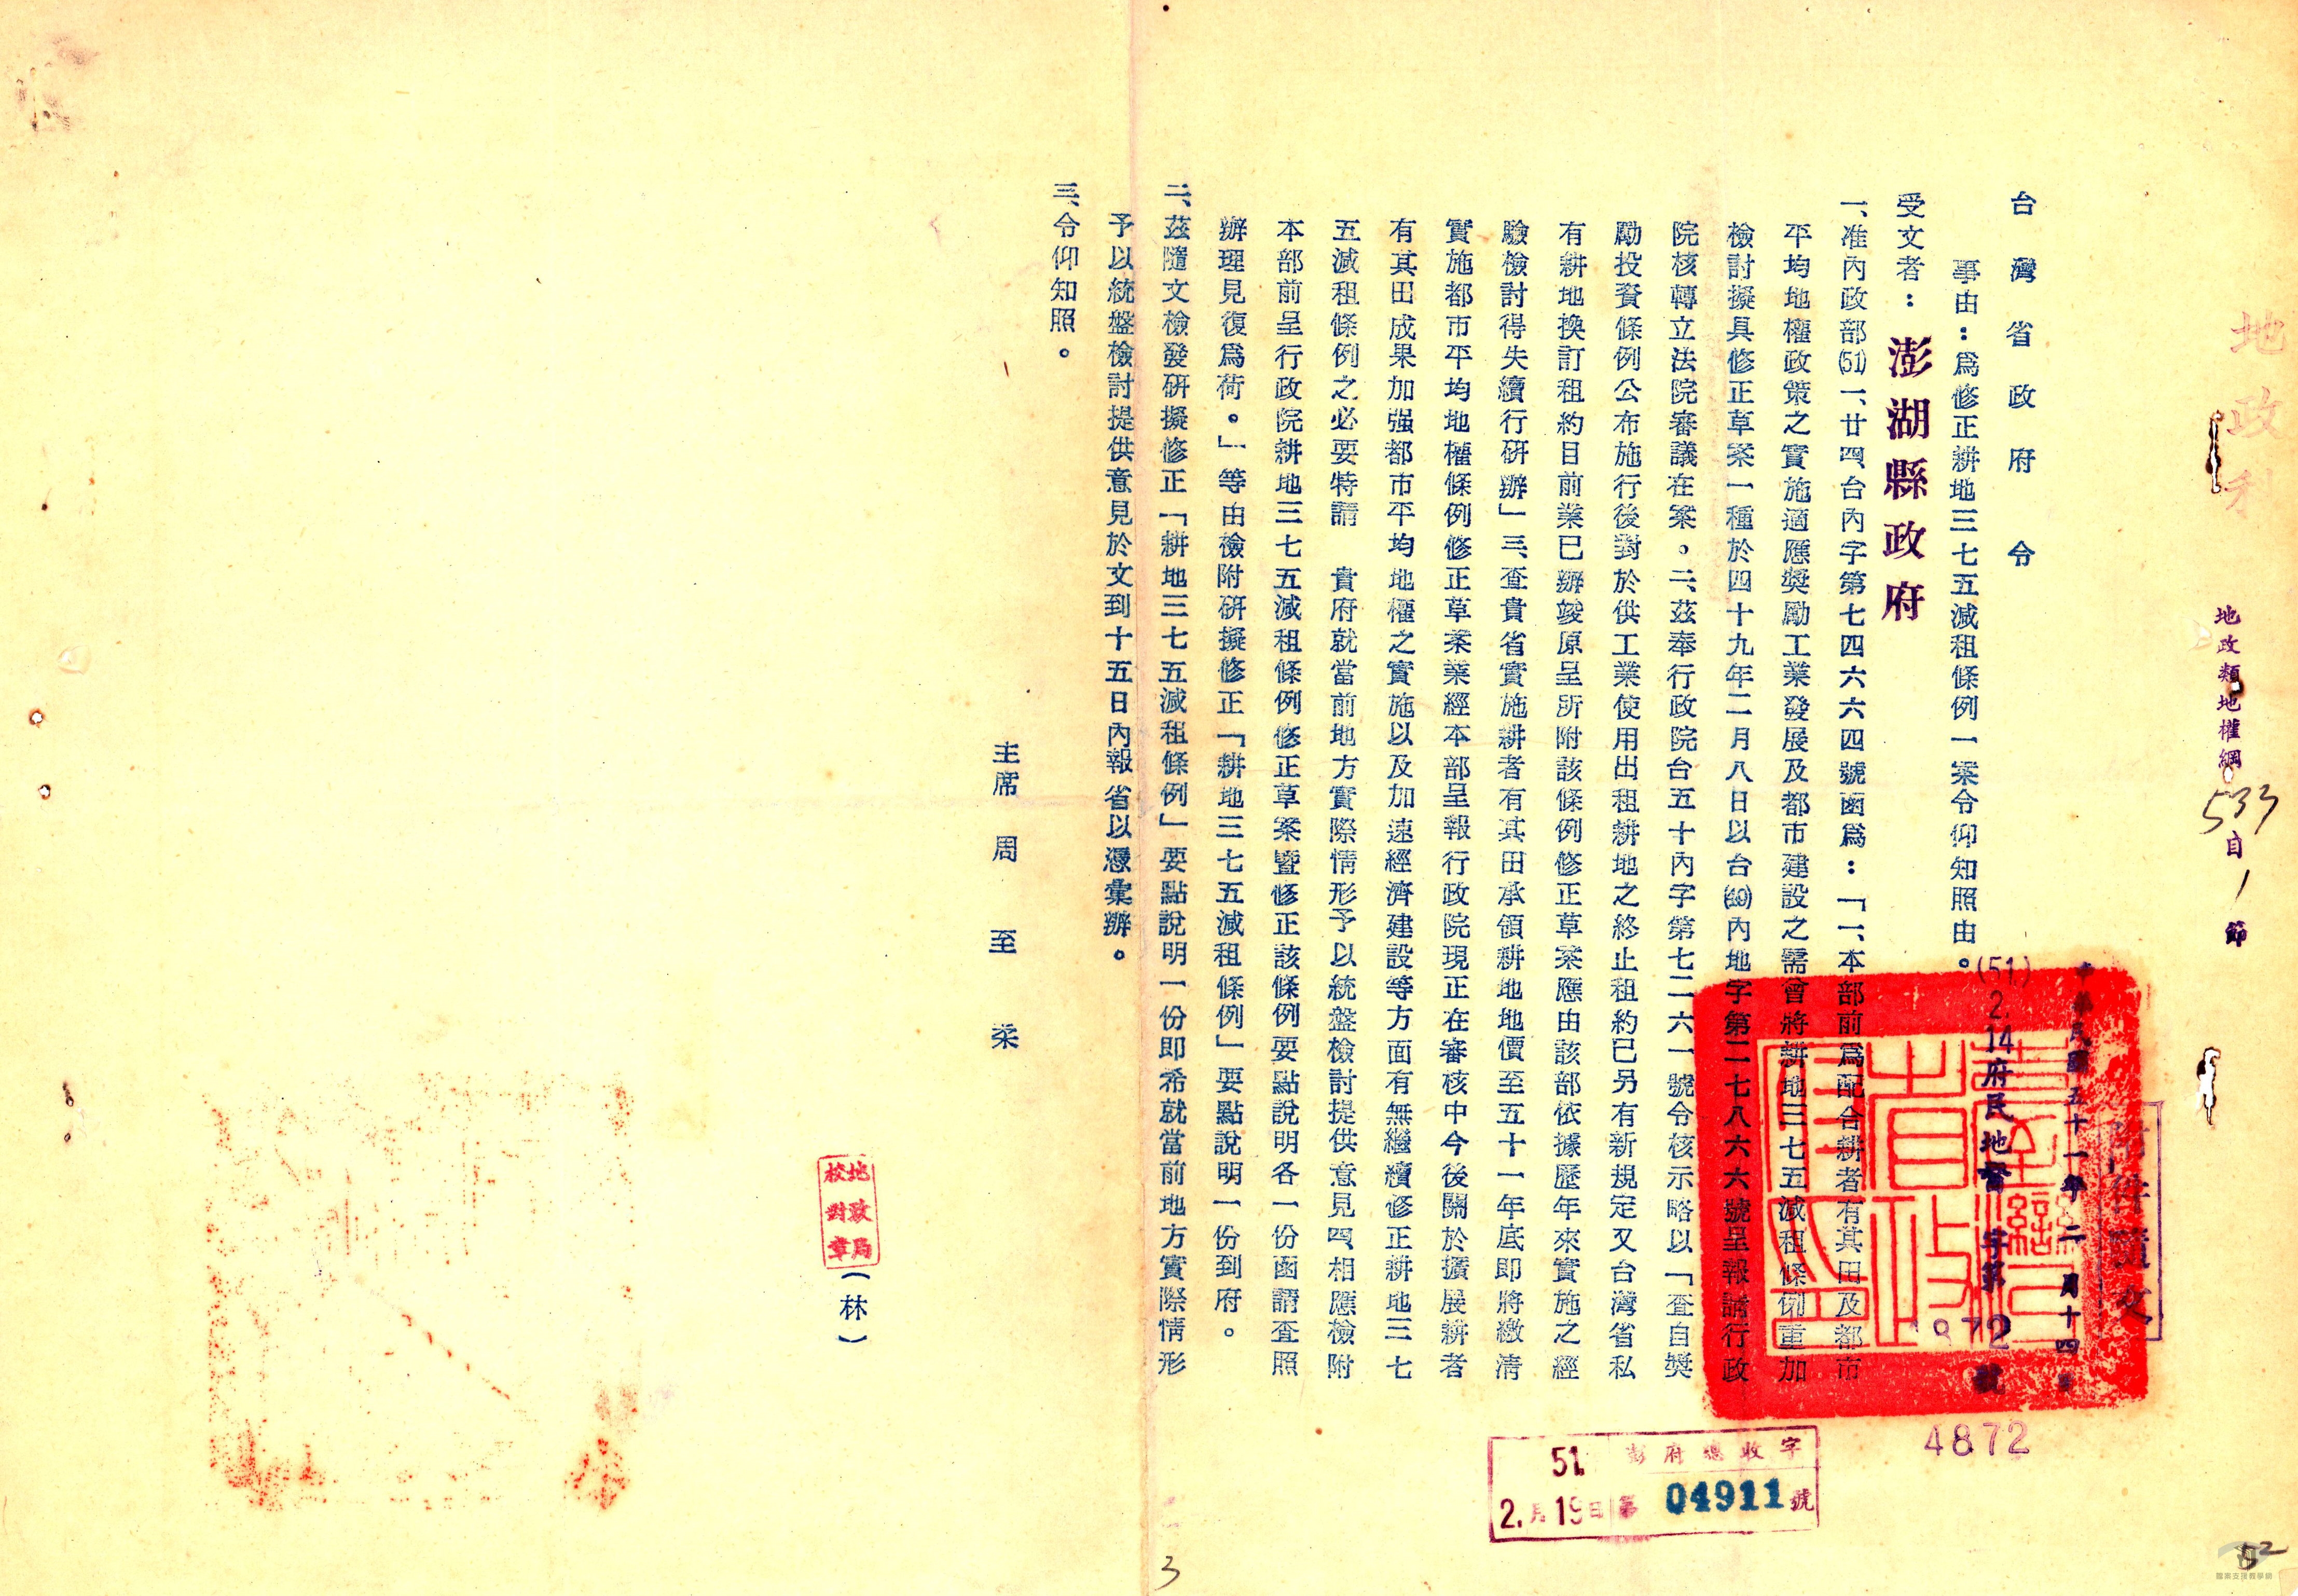 地政科
地政類地權綱533目1節
附件隨文
中華民國五十一年二月十四
(51)2.14府民地督字第 872號
4872
台灣省政府令
事由：為修正耕地三七五減租條例一案令仰知照由。
受文者：澎湖縣政府
一、准內政部(51)一、廿四、台內字第七四六六四號函為：「一、本部前為配合耕者有其田及都市
平均地權政策之實施適應獎勵工業發展及都市建設之需曾將耕地三七五減租條例重加
檢討擬具修正草案一種於四十九年二月八日以台(49)內地字第二七八六六號呈報請行政
院核轉立法院審議在案。二、茲奉行政院台五十內字第七二六一號令核示略以「查自獎
勵投資條例公布施行後對於供工業使用出租耕地之終止租約已另有新規定又台灣省私
有耕地換訂租約目前業已辦竣原呈所附該條例修正草案應由該部依據歷年來實施之經
驗檢討得失續行研辦」三、查貴省實施耕者有其田承領耕地地價至五十一年底即將繳清
實施都市平均地權條例修正草案業經本部呈報行政院現正在審核中今後關於擴展耕者
有其田成果加强都市平均地權之實施以及加速經濟建設等方面有無繼續修正耕地三七
五減租條例之必要特請　貴府就當前地方實際情形予以統盤檢討提供意見四、相應檢附
本部前呈行政院耕地三七五減租條例修正草案暨修正該條例要點說明各一份函請查照
辦理見復為荷。」等由檢附研擬修正「耕地三七五減租條例」要點說明一份到府。
二、茲隨文檢發研擬修正「耕地三七五減租條例」要點說明一份即希就當前地方實際情形
予以統盤檢討提供意見於文到十五日內報省以憑彙辦。
三、令仰知照。
主席　周　至　柔
地政局
校對章
（林）
51. 澎府總收字
2.月19日第 04911 號
3
52